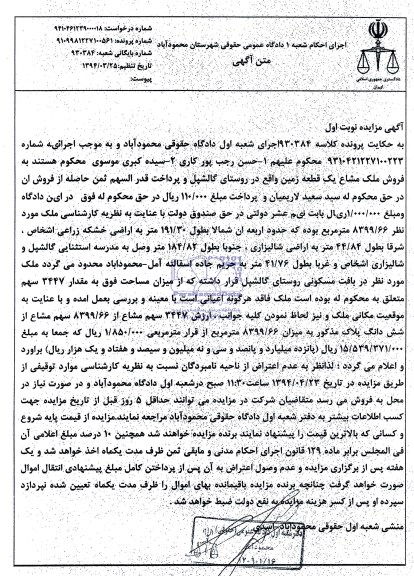 شماره درخواست: ۹۴۱۰۴۶۱۲۳۹۰۰۰۰۱۸
شماره پرونده: ۹۱۰۹۹۸۱۲۲۷۱۰۰۵۶۱
شماره بایگانی شعبه: ۹۳۰۳۸۴
تاریخ تنظیم: ۱۳۹۴/۰۳/۲۵
پیوست:
اجرای احکام شعبه ۱ دادگاه عمومی حقوقی شهرستان محمودآباد
متن آگهی
دادگستری جمهوری اسلامی
ایران
آگهی مزایده نوبت اول
به حکایت پرونده کلاسه ۹۳۰۳۸۴اجرای شعبه اول دادگاه حقوقی محمودآباد و به موجب اجرائیه شماره
۹۳۱۰۴۲۱۲۲۷۱۰۰۲۲۳ محکوم علیهم ۱-حسن رجب پور کاری ۲-سیده کبری موسوی محکوم هستند به
فروش ملک مشاع یک قطعه زمین واقع در روستای گالشپل و پرداخت قدر السهم ثمن حاصله از فروش ان
در حق محکوم له سید سعید لاریمیان و پرداخت مبلغ ۱۱۰/۰۰۰ ریال در حق محکوم له فوق در این دادگاه
ومبلغ ۱/۰۰۰/۰۰۰ریال بابت نیم عشر دولتی در حق صندوق دولت با عنایت به نظریه کارشناسی ملک مورد
نظر ۸۳۹۹/۶۶ مترمربع بوده که حدود اربعه ان شمالا بطول ۱۹۱/۳۰ متر به اراضی خشکه زراعی اشخاص
شرقا بطول ۴۴/۸۴ متر به اراضی شالیزاری . جنوبا بطول ۱۸۴/۸۲ متر وصل به مدرسه استثنایی گالشپل و
شالیزاری اشخاص و غربا بطول ۴۱/۷۶ متر به حریم جاده اسفالته آمل-محموداباد محدود می گردد ملک
مورد نظر در بافت مسکونی روستای گالشپل قرار داشته که از میزان مساحت فوق به مقدار ۳۴۴۷ سهم
متعلق به محکوم له بوده است ملک فاقد هرگونه اعیانی است با معینه و بررسی بعمل امده و با عنایت به
موقعیت مکانی ملک و نیز لحاظ نمودن کلیه جوانب . ارزش ۳۴۴۷ سهم مشاع از ۸۳۹۹/۶۶ سهم مشاع از
شش دانگ پلاک مذکور به میزان ۸۳۹۹/۶۶ مترمربع از قرار مترمربعی ۱/۸۵۰/۰۰۰ ریال که جمعا به مبلغ
۱۵/۵۳۹/۳۷۱/۰۰۰ ریال (پانزده میلیارد و پانصد و سی و نه میلیون و سیصد و هفتاد و یک هزار ریال) براورد
و اعلام می گردد ؛ لذانظر به عدم اعتراض از ناحیه نامبردگان نسبت به نظریه کارشناسی موارد توقیفی از
طریق مزایده در تاریخ ۱۳۹۴/۰۴/۲۳ ساعت۱۱:۳۰ صبح درشعبه اول دادگاه محمودآباد و در صورت نیاز در
محل به فروش می رسد متقاضیان شرکت در مزایده می توانند حداقل ۵ روز قبل از تاریخ مزایده جهت
کسب اطلاعات بیشتر به دفتر شعبه اول دادگاه حقوقی محمودآباد مراجعه نمایند.مزایده از قیمت پایه شروع
و کسانی که بالاترین قیمت را پیشنهاد نمایند برنده مزایده خواهند شد همچنین ۱۰ درصد مبلغ اعلامی آن
فی المجلس برابر ماده ۱۲۹ قانون اجرای احکام مدنی و مابقی ثمن ظرف مدت یکماه اخذ خواهد شد و یک
هفته پس از برگزاری مزایده و عدم وصول اعتراض به آن پس از پرداختن کامل مبلغ پیشنهادی انتقال اموال
صورت خواهد گرفت چنانچه برنده مزایده باقیمانده بهای اموال را ظرف مدت یکماه تعیین شده نپردازد
سپرده او پس از کسر هزینه مزایده به نفع دولت ضبط خواهد شد .
منشی شعبه اول حقوقی محمودآباد-اسدی